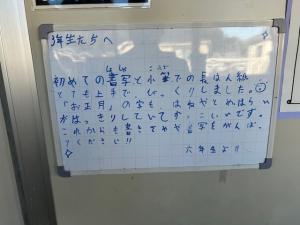 3年生たちへ
初めての書写と小筆での長はん紙
とても上手で、びっくりしました。
「お正月」の字も、はねやとめはらい
がはっきりしていて、すごいです。
これからも書きぞめや書写をがんば
ってください!!
六年生より!!